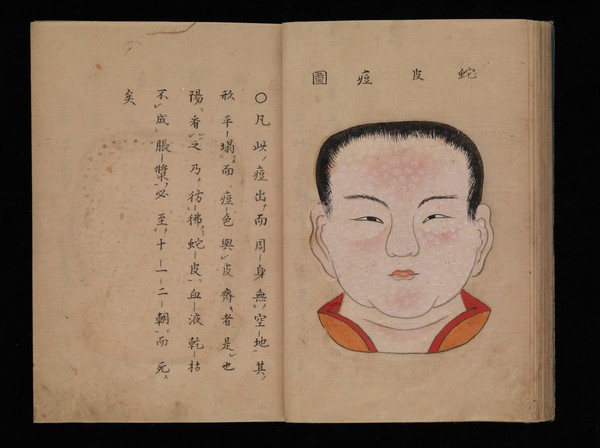 蛇皮痘圖
〇凡此痘出而周身無空地其
形平塌而痘色與皮齊者是也
陽看之乃彷彿蛇皮血液乾枯
不成脹漿必至十一二朝而死
矣